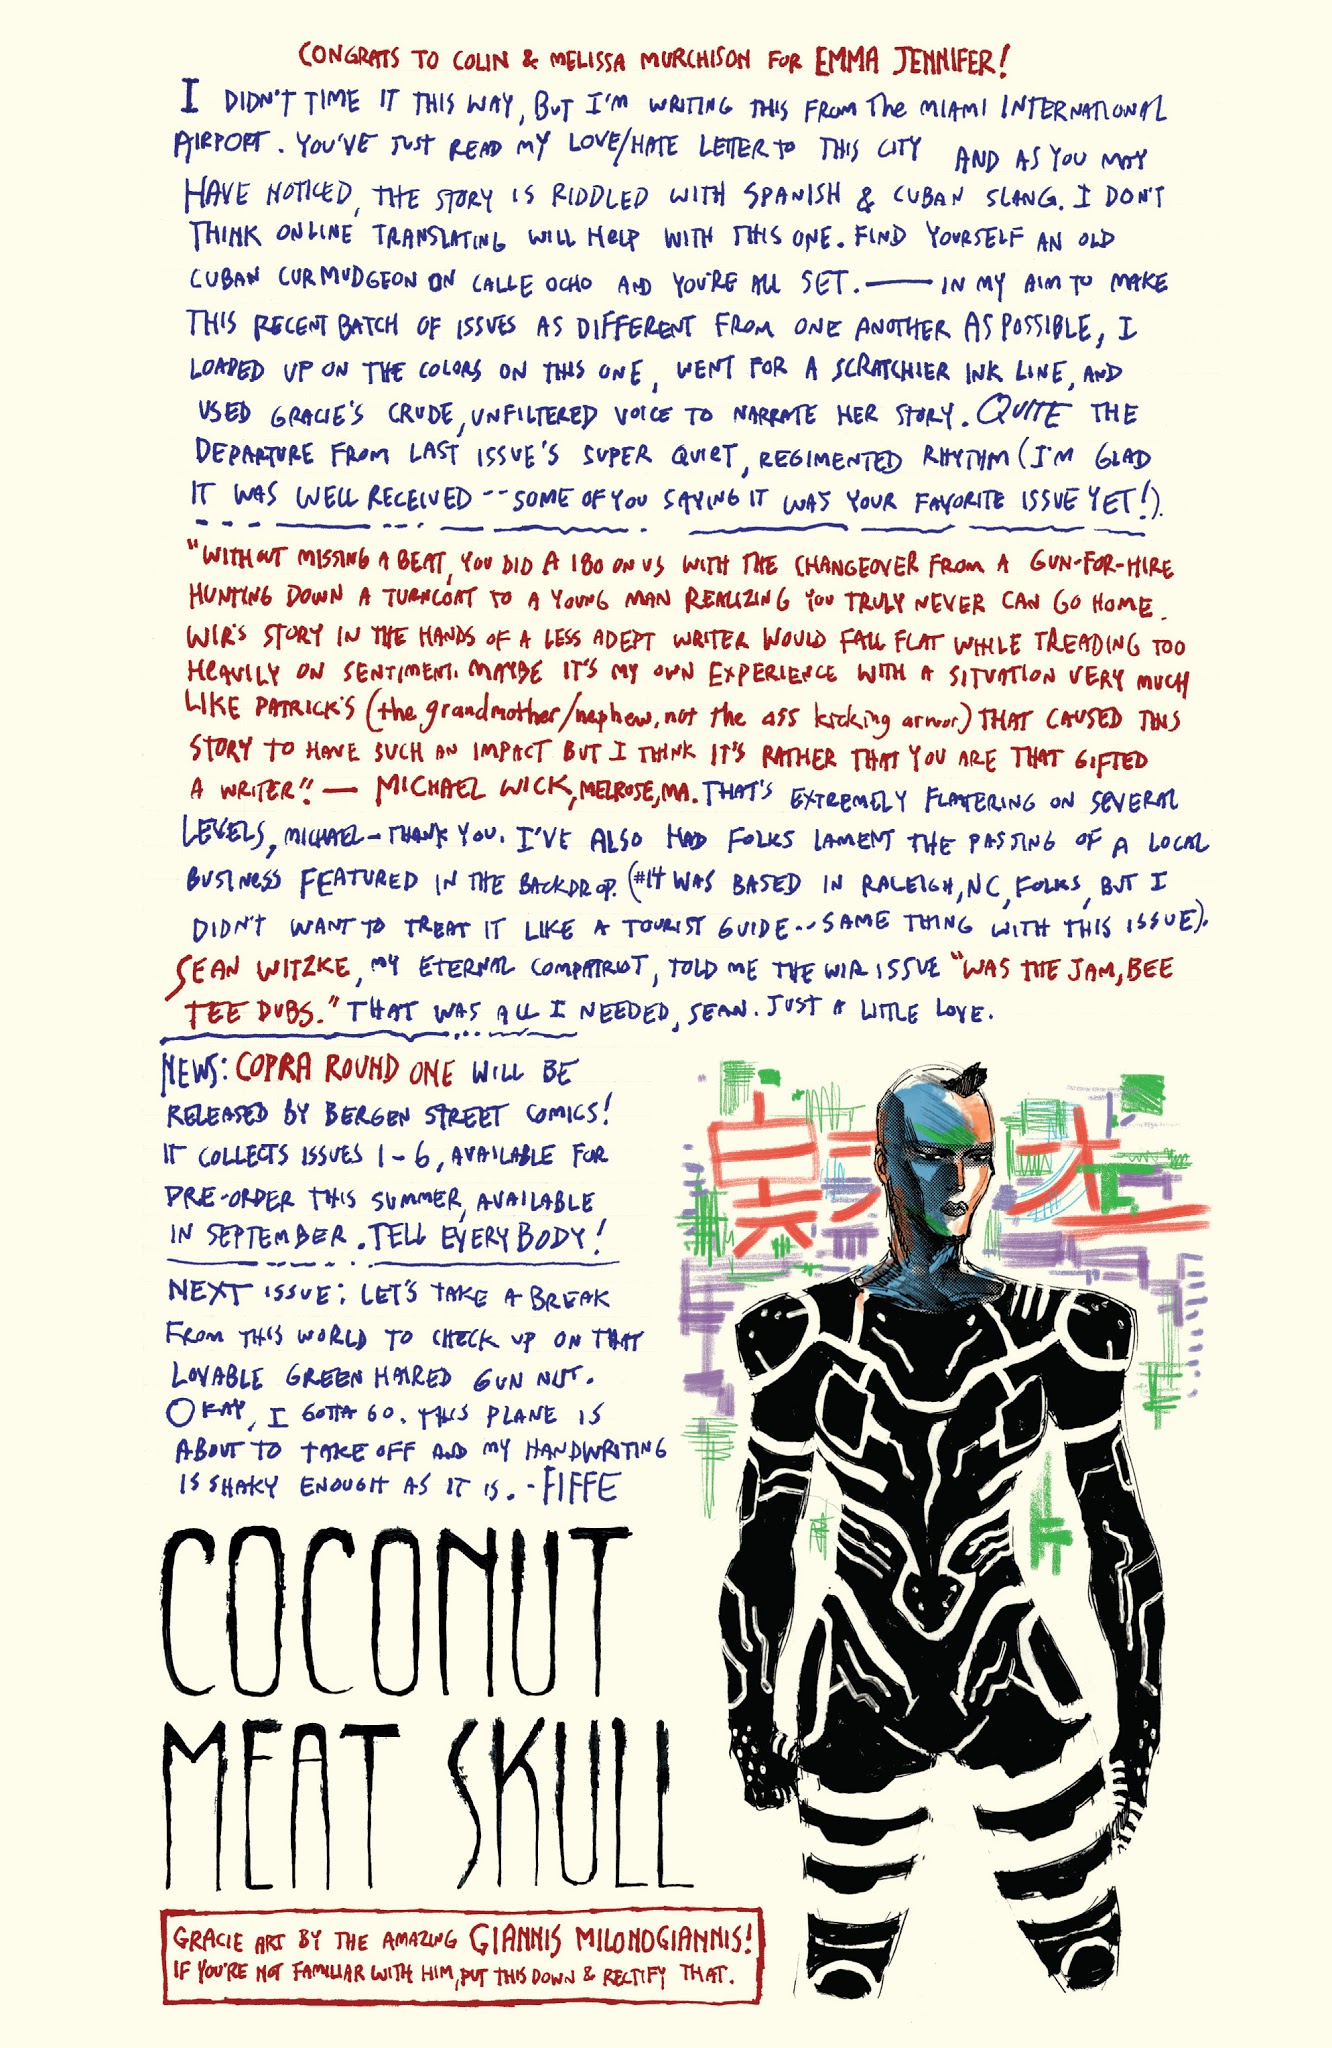 CONGRATS TO COLIN & MELISSA MURCHISON FOR EMMA JENNIFER!
I DIDN'T TIME IT THIS WAY, BUT I'M WRITING THIS FROM THE MIAMI INTERNATIONAL
AIRPORT. YOU'VE JUST READ MY LOVE/HATE LETTER TO THIS CITY AND AS YOU MAY
HAVE NOTICED, THE STORY IS RIDDLED WITH SPANISH & CUBAN SLANG. I DON'T
THINK ONLINE TRANSLATING WILL HELP WITH THIS ONE. FIND YOURSELF AN OLD
CUBAN CURMUDGEON ON CALLE OCHO AND YOU'RE ALL SET. — IN MY AIM TO MAKE
THIS RECENT BATCH OF ISSUES AS DIFFERENT FROM ONE ANOTHER AS POSSIBLE, I
LOADED UP ON THE COLORS ON THIS ONE, WENT FOR A SCRATCHIER INK LINE, AND
USED GRACIE'S CRUDE, UNFILTERED VOICE TO NARRATE HER STORY. QUITE THE
DEPARTURE FROM LAST ISSUE'S SUPER QUIET, REGIMENTED RHYTHM (I'M GLAD
IT WAS WELL RECEIVED -- SOME OF YOU SAYING IT WAS YOUR FAVORITE ISSUE YET!).
"WITHOUT MISSING A BEAT, YOU DID A 180 ON US WITH THE CHANGEOVER FROM A GUN-FOR-HIRE
HUNTING DOWN A TURNCOAT TO A YOUNG MAN REALIZING YOU TRULY NEVER CAN GO HOME.
WIR'S STORY IN THE HANDS OF A LESS ADEPT WRITER WOULD FALL FLAT WHILE TREADING TOO
HEAVILY ON SENTIMENT. MAYBE IT'S MY OWN EXPERIENCE WITH A SITUATION VERY MUCH
LIKE PATRICK'S (the grandmother/nephew, not the ass kicking armor) THAT CAUSED THIS
STORY TO HAVE SUCH AN IMPACT BUT I THINK IT'S RATHER THAT YOU ARE THAT GIFTED
A WRITER." — MICHAEL WICK, MELROSE, MA. THAT'S EXTREMELY FLATTERING ON SEVERAL
LEVELS, MICHAEL - THANK YOU. I'VE ALSO HAD FOLKS LAMENT THE PASSING OF A LOCAL
BUSINESS FEATURED IN THE BACKDROP. (#14 WAS BASED IN RALEIGH, NC, FOLKS, BUT I
DIDN'T WANT TO TREAT IT LIKE A TOURIST GUIDE -- SAME THING WITH THIS ISSUE).
SEAN WITZKE, MY ETERNAL COMPATRIOT, TOLD ME THE WIR ISSUE "WAS THE JAM, BEE
TEE DUBS." THAT WAS ALL I NEEDED, SEAN. JUST A LITTLE LOVE.
NEWS: COPRA ROUND ONE WILL BE
RELEASED BY BERGEN STREET COMICS!
IT COLLECTS ISSUES 1 - 6, AVAILABLE FOR
PRE-ORDER THIS SUMMER, AVAILABLE
IN SEPTEMBER. TELL EVERYBODY!
NEXT ISSUE: LET'S TAKE A BREAK
FROM THIS WORLD TO CHECK UP ON THAT
LOVABLE GREEN HAIRED GUN NUT.
OKAY, I GOTTA GO. THIS PLANE IS
ABOUT TO TAKE OFF AND MY HANDWRITING
IS SHAKY ENOUGH AS IT IS. - FIFFE
COCONUT
MEAT SKULL
GRACIE ART BY THE AMAZING GIANNIS MILONOGIANNIS!
IF YOU'RE NOT FAMILIAR WITH HIM, PUT THIS DOWN & RECTIFY THAT.